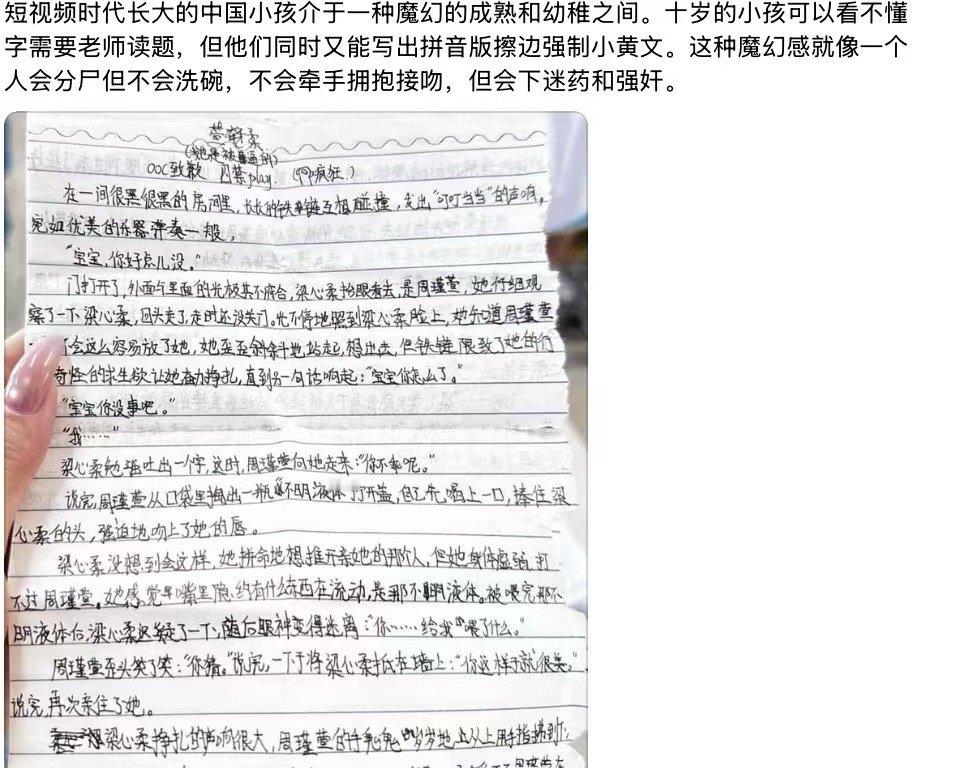 短视频时代长大的中国小孩介于一种魔幻的成熟和幼稚之间。十岁的小孩可以看不懂
字需要老师读题，但他们同时又能写出拼音版擦边强制小黄文。这种魔幻感就像一个
人会分尸但不会洗碗，不会牵手拥抱接吻，但会下迷药和强奸。
OOC致歉 囚禁play.
在一间很黑很黑的房间里，长长的铁链互相碰撞，发出“叮叮当当”的声响，
宛如优美的乐器弹奏一般，
“宝宝，你好点儿没。”
门打开了，外面与里面的光极其不符合，梁心柔抬眼看去，是周瑾萱，她仔细观
察了一下梁心柔，回头走了，走时还没关门。光不停地照到梁心柔脸上，她知道周瑾萱
会这么容易放了她，她歪歪斜斜地站起，想出去，但铁链限致了她的行
奇怪的求生欲让她奋力挣扎，直到另一句话响起：“宝宝你怎么了。”
“宝宝你没事吧。”
“我……”
梁心柔勉强吐出一个字，这时，周瑾萱向她走来：“你不乖呢。”
说完，周瑾萱从口袋里掏出一瓶不明液体 打开盖，自己先喝上一口，捧住梁
心柔的头，强迫地吻上了她的唇。
梁心柔没想到会这样，她拼命地想推开亲她的那个人，但她身体虚弱，打
不过周瑾萱。她感觉早嘴里隐约有什么东西在流动，是那不明液体。被喂完那不
明液体后，梁心柔迟疑了一下，随后眼神变得迷离：“你……给我喂了什么。”
周瑾萱歪头笑了笑：“你猜。”说完，一下子将梁心柔抵在墙上：“你这样子就很美。”
说完再次亲住了她。
梁心柔挣扎的声响很大，周瑾萱的手 地从上用手指